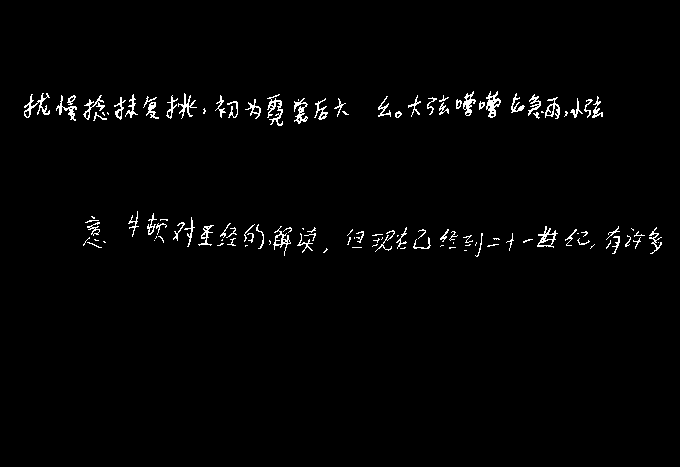 拢慢捻抹复挑,初为霓裳后六 幺。大弦嘈嘈如急雨,小弦
意 牛顿对圣经的解读,但现在已经到二十一世纪,有许多